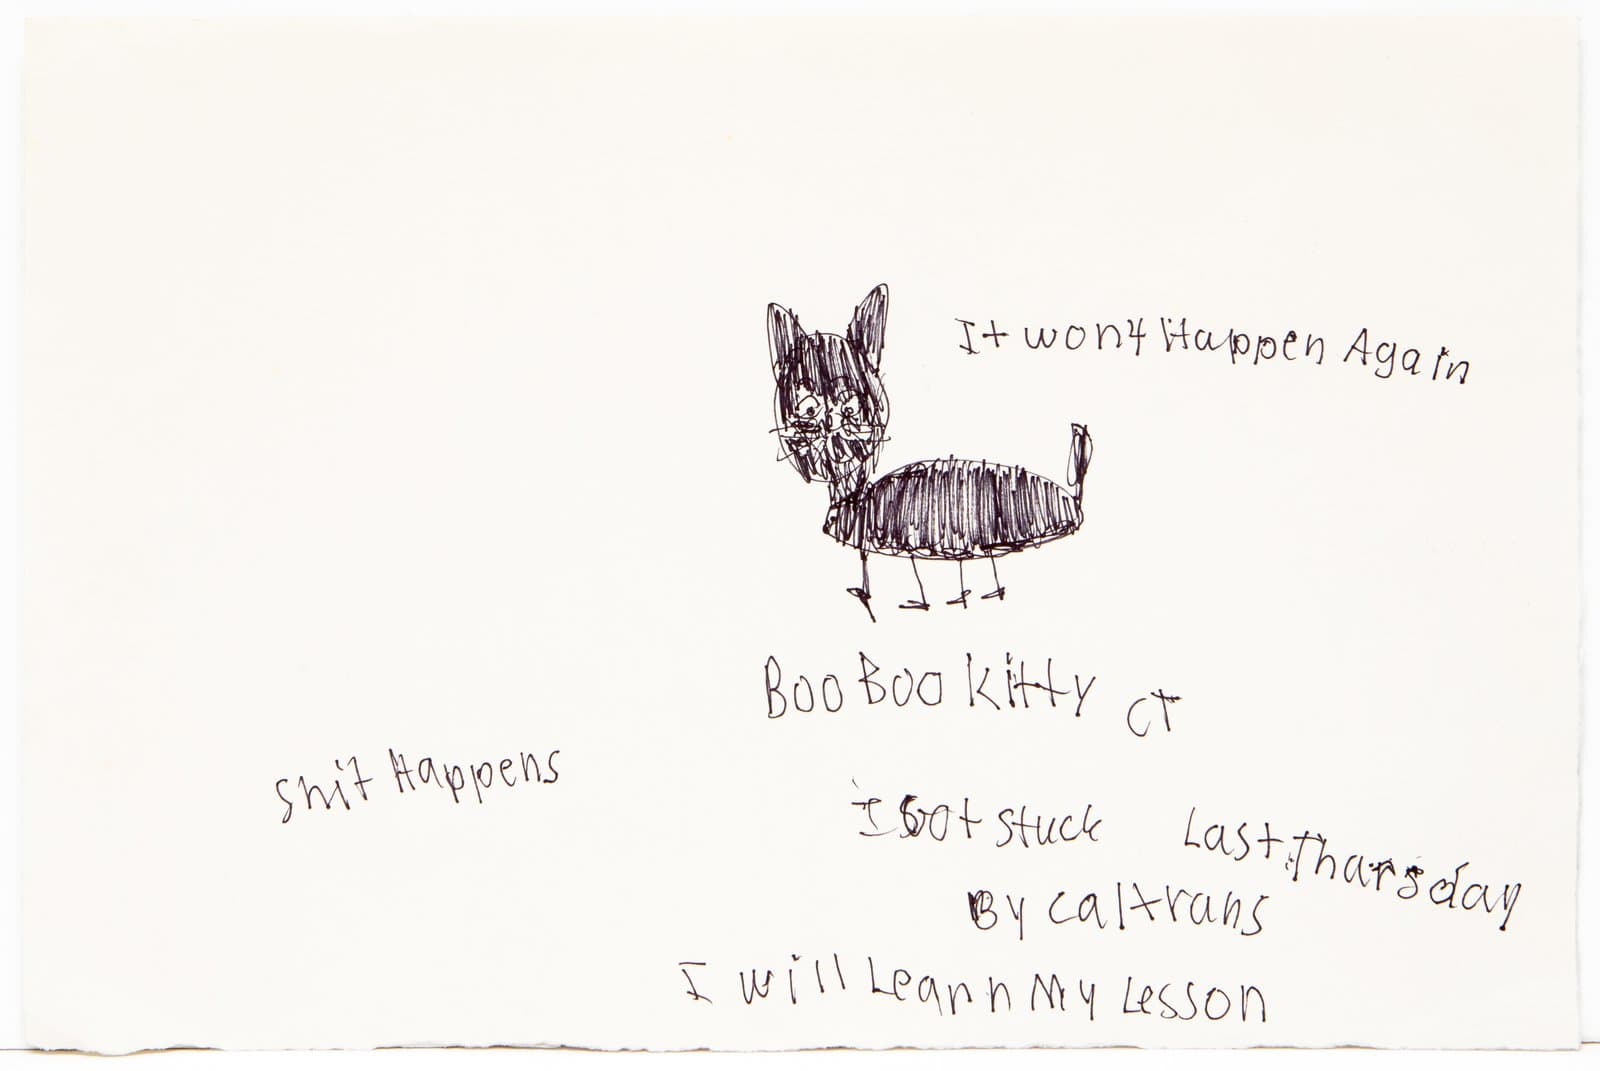 It wont Happen Again
Boo Boo Kitty CT
Shit Happens
I Got Stuck Last Tharsday
By caltrans
I will Learn My Lesson